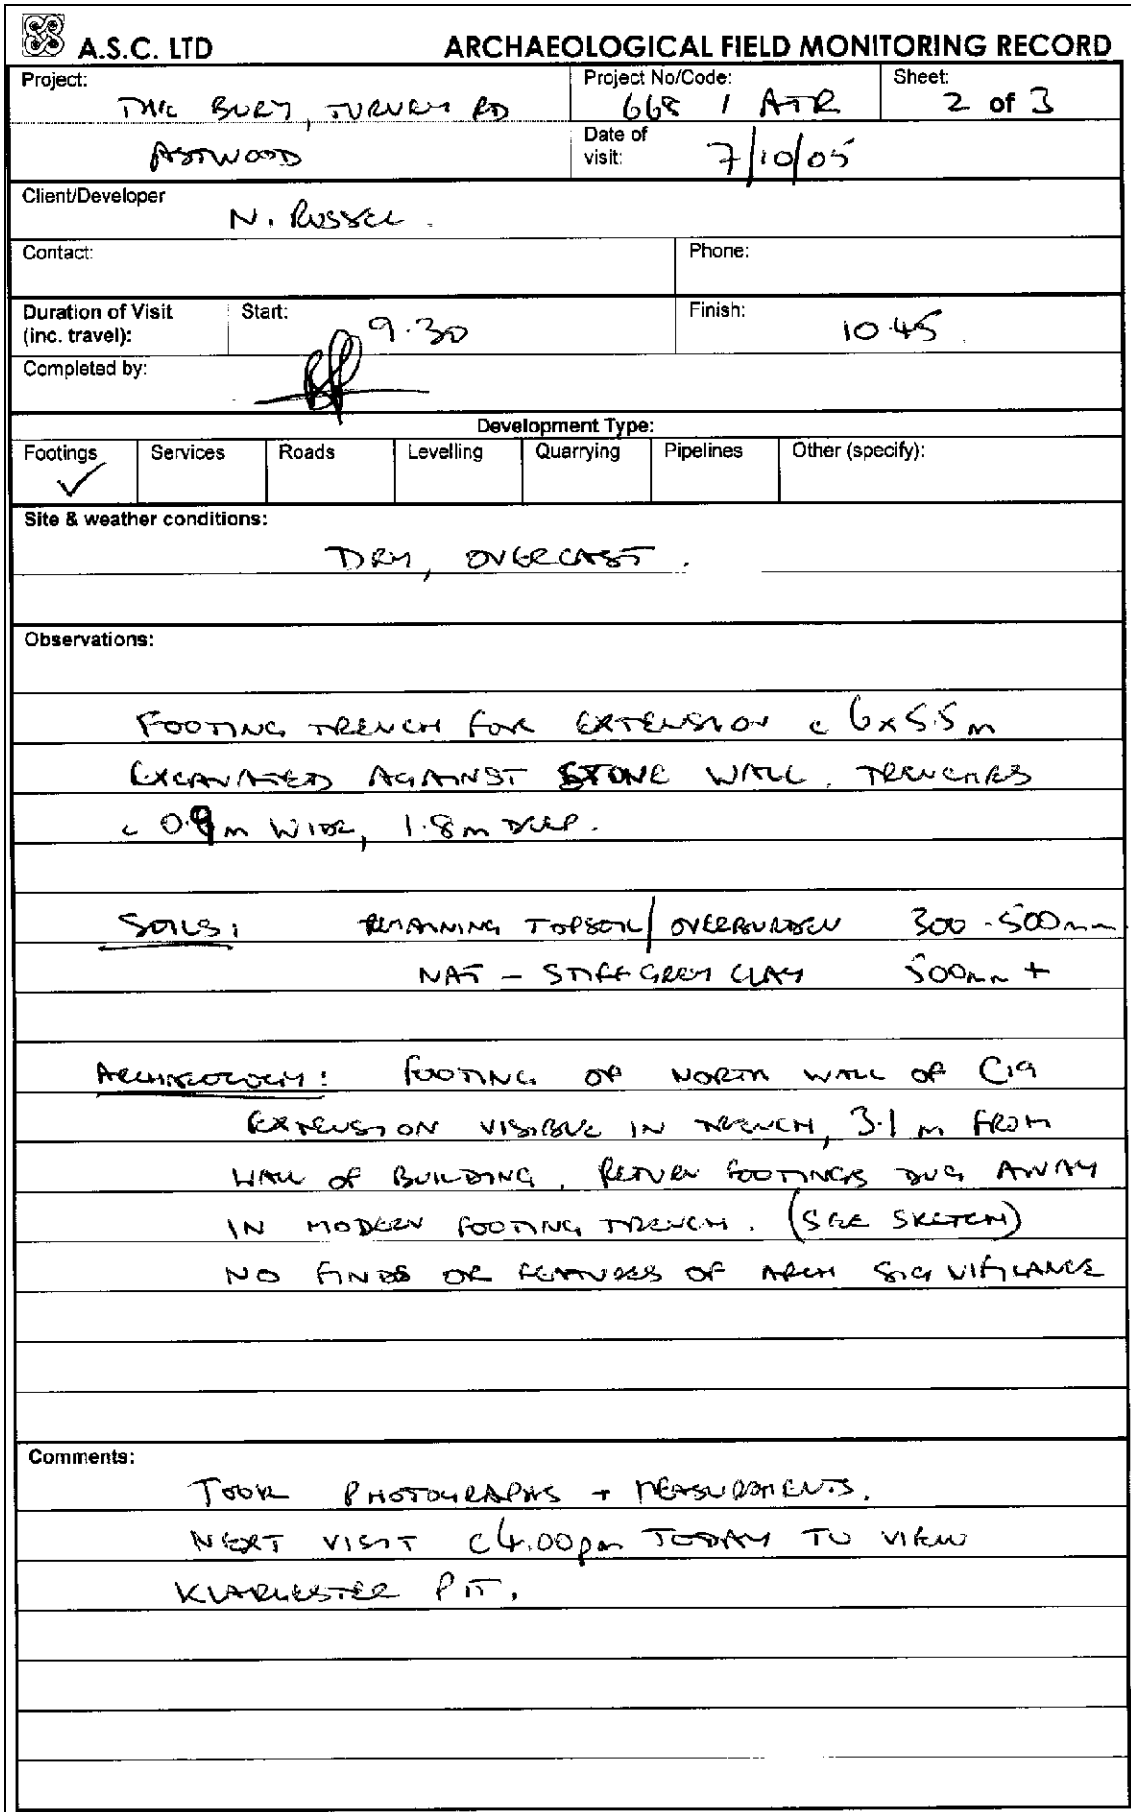 A.S.C. LTD ARCHAEOLOGICAL FIELD MONITORING RECORD
Project: THE BURY, TURVEY RD
ASTWOOD
Project No/Code: 668 / ATR
Sheet: 2 of 3
Date of visit: 7/10/05
Client/Developer N. RUSSEL.
Contact:
Phone:
Duration of Visit (inc. travel):
Start: 9.30
Finish: 10.45
Completed by:
Development Type:
Footings ✓ Services Roads Levelling Quarrying Pipelines Other (specify):
Site & weather conditions:
DRY, OVERCAST.
Observations:
FOOTING TRENCH FOR EXTENSION c 6 x 5.5 m
EXCAVATED AGAINST STONE WALL. TRENCHES
c 0.9 m WIDE, 1.8 m DEEP.
SOILS: REMAINING TOPSOIL / OVERBURDEN 300 - 500mm
NAT - STIFF GREY CLAY 500mm +
ARCHAEOLOGY: FOOTING OF NORTH WALL OF C19
EXTENSION VISIBLE IN TRENCH, 3.1 m FROM
WALL OF BUILDING. RETURN FOOTINGS DUG AWAY
IN MODERN FOOTING TRENCH. (SEE SKETCH)
NO FINDS OR FEATURES OF ARCH SIGNIFICANCE
Comments:
TOOK PHOTOGRAPHS + MEASUREMENTS.
NEXT VISIT c 4.00pm TODAY TO VIEW
KLARGESTER PIT.